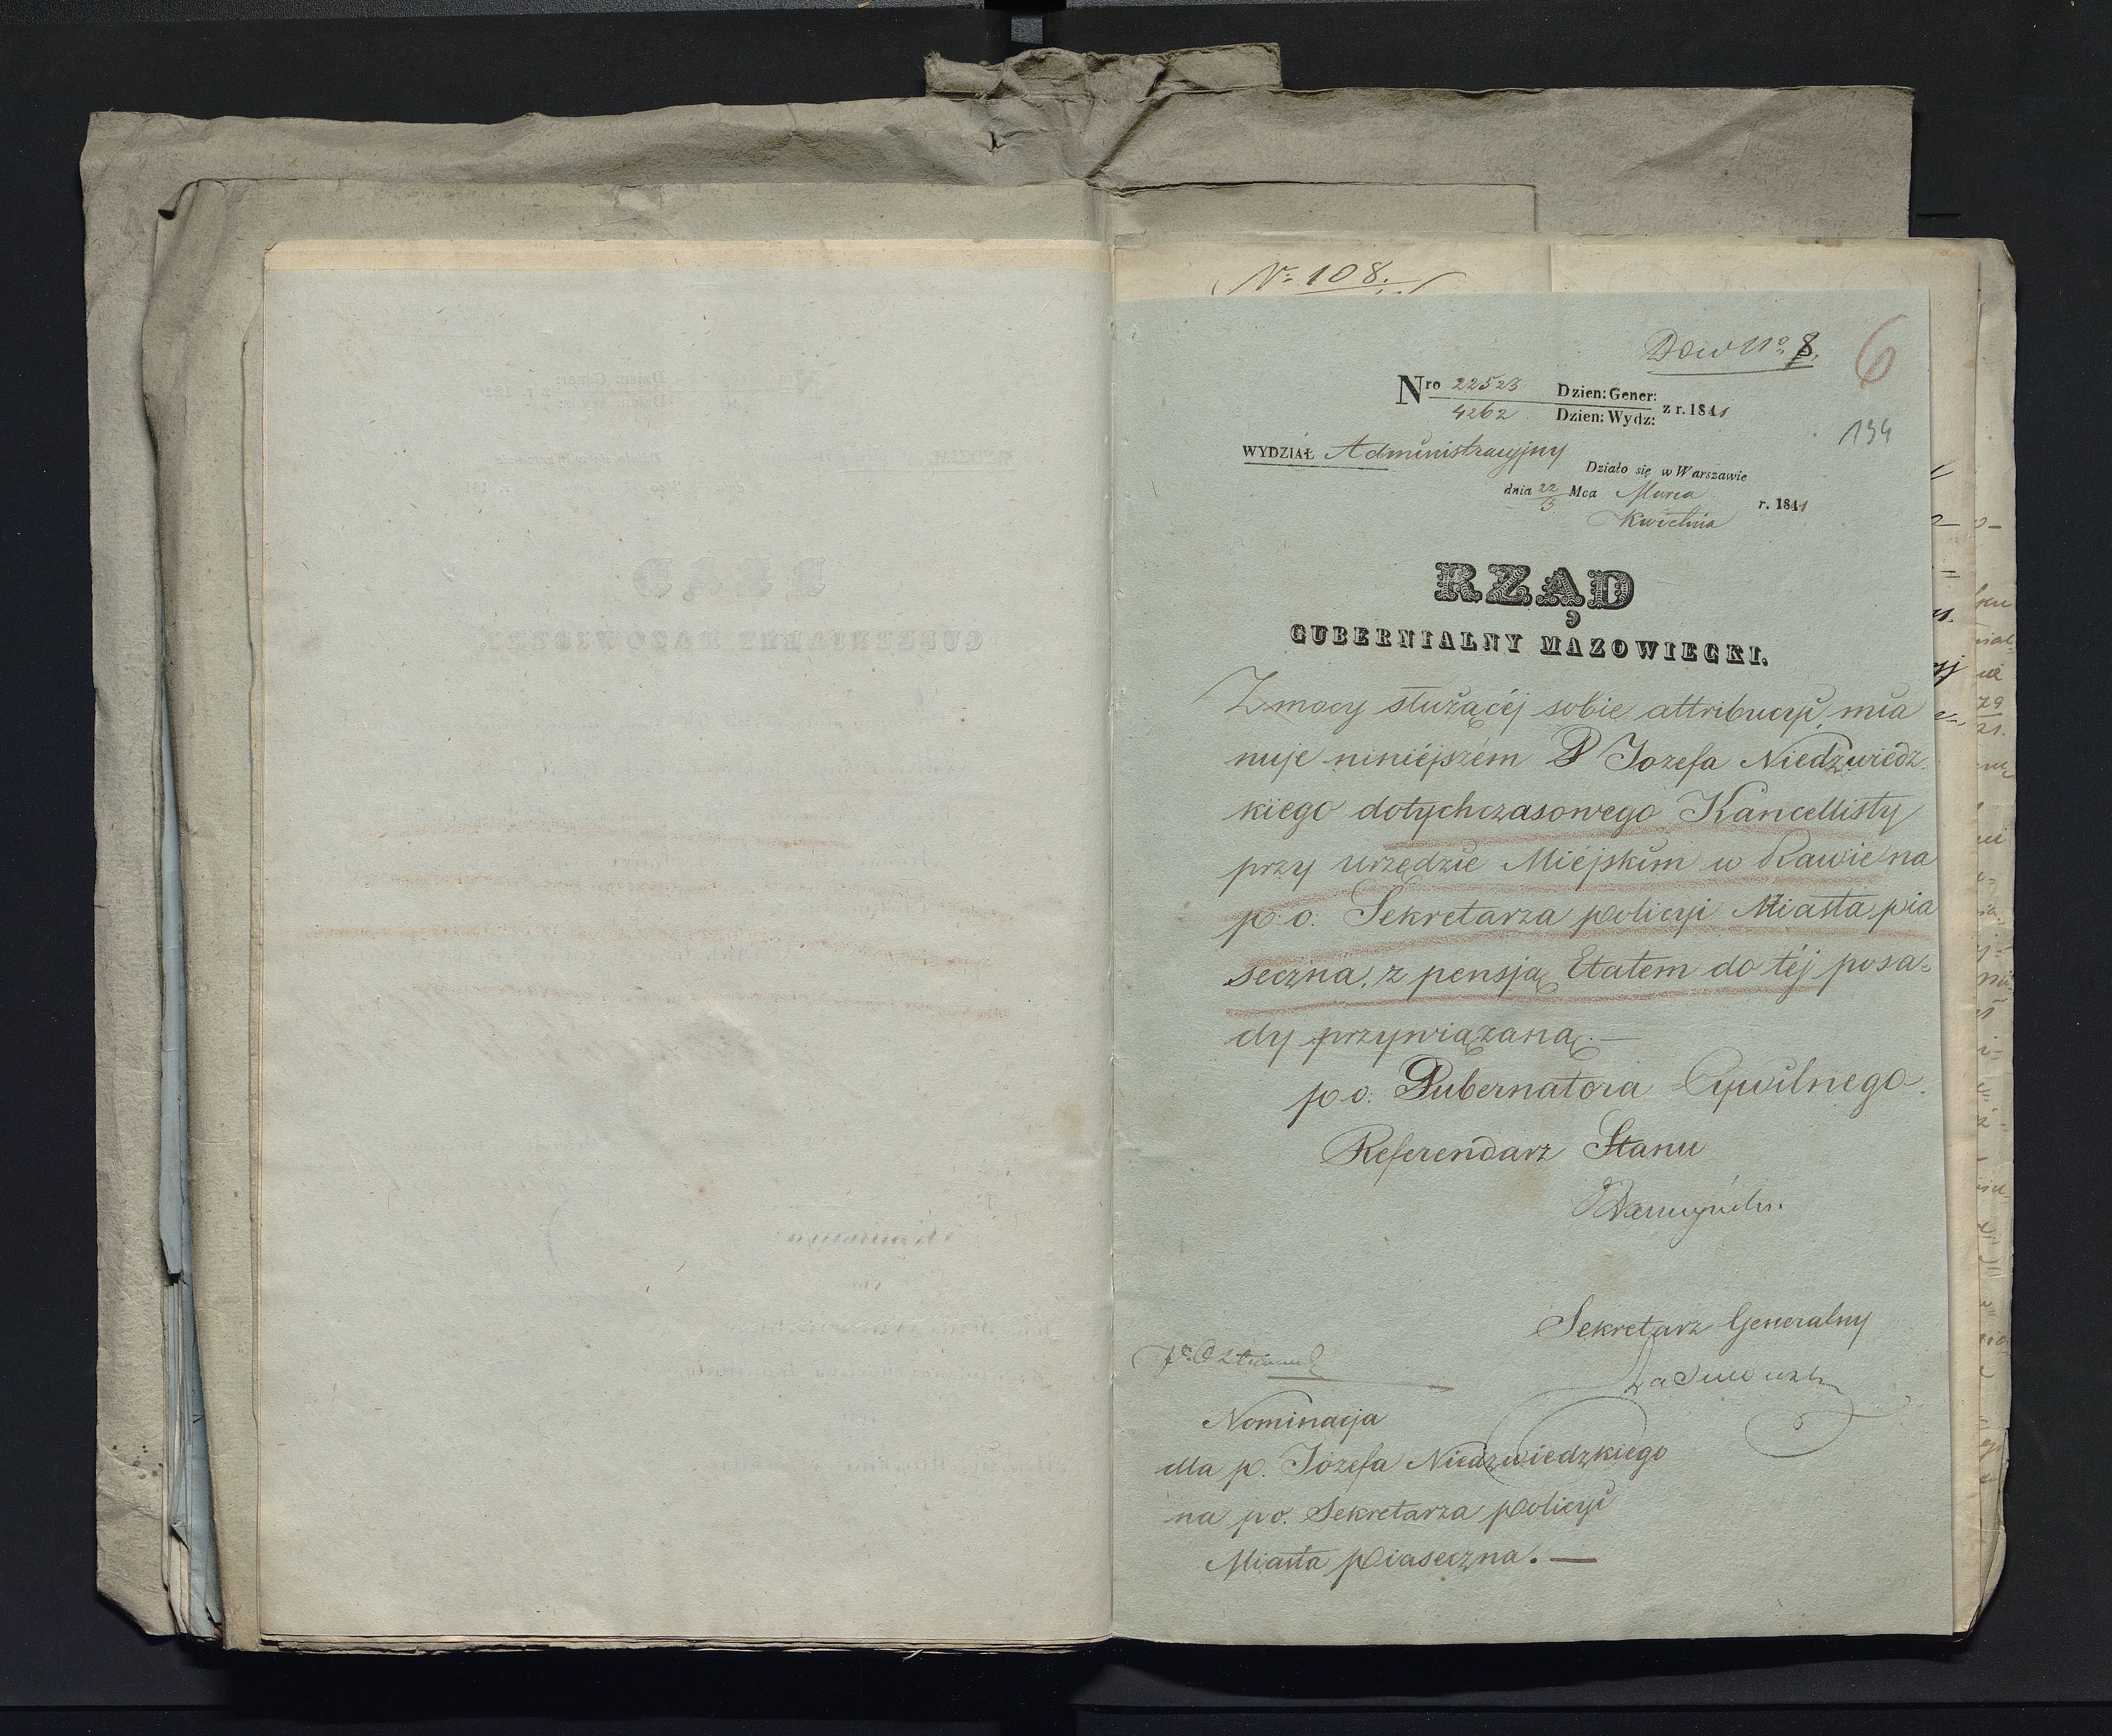 Nº 108.
Dow Nº 8.
6
Nro 22523 Dzien: Gener:
4262 Dzien: Wydz: z r. 1841
134
WYDZIAŁ Administracyjny
Działo się w Warszawie
dnia 22 Mca Marca
3 Kwietnia r. 1841
RZĄD
GUBERNIALNY MAZOWIECKI.
Z mocy służącéj sobie attribucyi, mia
nuje niniéjszém P Jozefa Niedzwiedz
kiego dotychczasowego Kancellisty
przy urzędzie Miéjskim w Rawie na
p.o. Sekretarza policyi Miasta pia
seczna, z pensją Etatem do téj posa=
dy przywiązaną.—
po. Gubernatora Cywilnego.
Referendarz Stanu
Sekretarz Generalny
Nominacja
dla p. Józefa Niedzwiedzkiego
na po. Sekretarza policyi
Miasta piaseczna.—